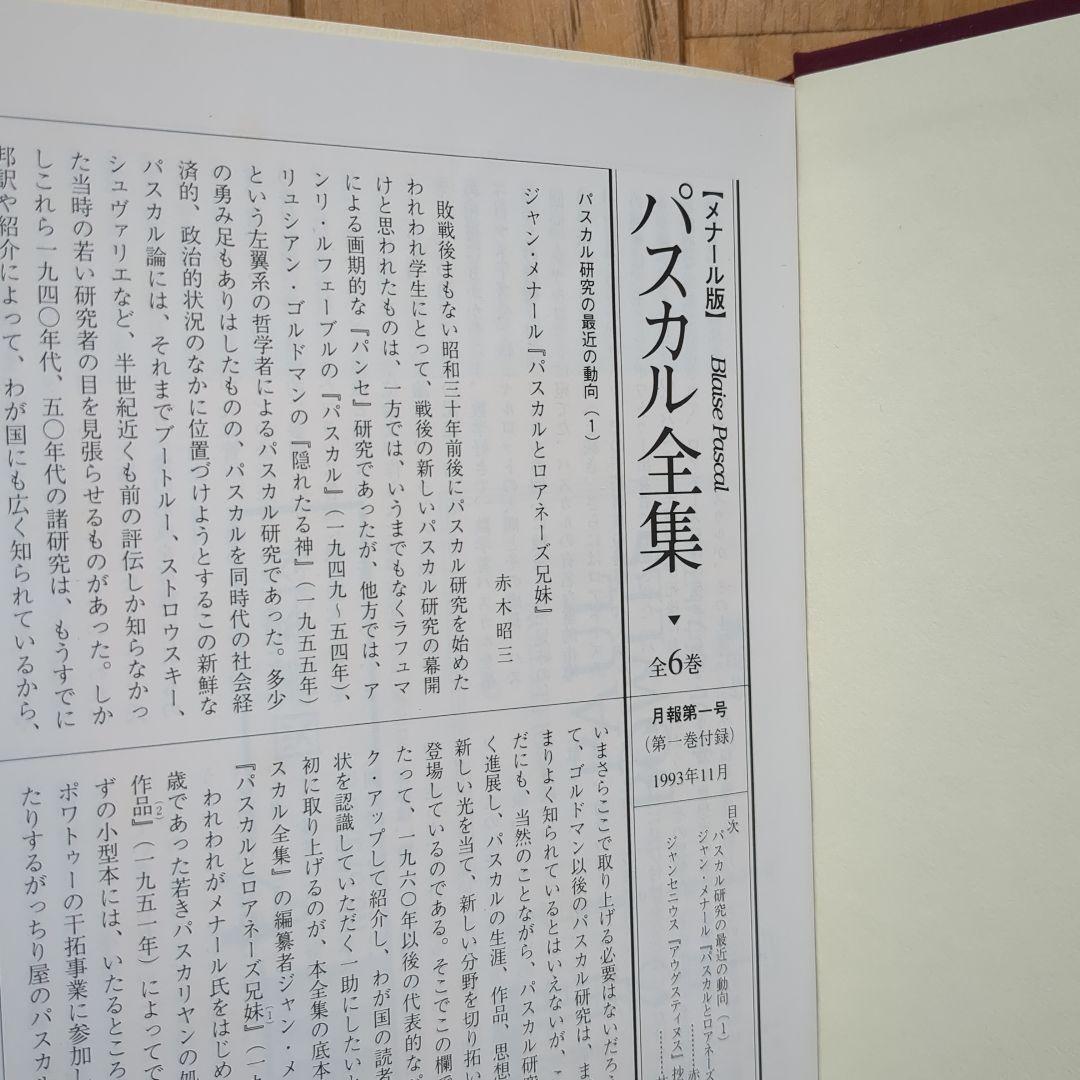 【メナール版】
パスカル全集
Blaise Pascal
▼
全6巻
月報第一号
(第一巻付録)
1993年11月
目次
パスカル研究の最近の動向(1)
ジャン・メナール『パスカルとロアネーズ
ジャンセニウス『アウグスティヌス』抄
パスカル研究の最近の動向(1)
ジャン・メナール『パスカルとロアネーズ兄妹』
赤木昭三
敗戦後まもない昭和三十年前後にパスカル研究を始めた
われわれ学生にとって、戦後の新しいパスカル研究の幕開
けと思われたものは、一方では、いうまでもなくラフュマ
による画期的な『パンセ』研究であったが、他方では、ア
ンリ・ルフェーブルの『パスカル』(一九四九〜五四年)、
リュシアン・ゴルドマンの『隠れたる神』(一九五五年)
という左翼系の哲学者によるパスカル研究であった。多少
の勇み足もありはしたものの、パスカルを同時代の社会経
済的、政治的状況のなかに位置づけようとするこの新鮮な
パスカル論には、それまでブートルー、ストロウスキー、
シュヴァリエなど、半世紀近くも前の評伝しか知らなかっ
た当時の若い研究者の目を見張らせるものがあった。しか
しこれら一九四〇年代、五〇年代の諸研究は、もうすでに
邦訳や紹介によって、わが国にも広く知られているから、
いまさらここで取り上げる必要はないだろう
て、ゴルドマン以後のパスカル研究は、ま
まりよく知られているとはいえないが、こ
だにも、当然のことながら、パスカル研究
く進展し、パスカルの生涯、作品、思想
新しい光を当て、新しい分野を切り拓い
登場しているのである。そこでこの欄で
たって、一九六〇年以後の代表的な
ク・アップして紹介し、わが国の読者
状を認識していただく一助にしたい
初に取り上げるのが、本全集の底本
スカル全集』の編纂者ジャン・メ
『パスカルとロアネーズ兄妹』(1)(一
われわれがメナール氏をはじめ
歳であった若きパスカリヤンの処
作品』(2)(一九五一年)によってで
ずの小型本には、いたるところ
ポワトゥーの干拓事業に参加し
たりするがっちり屋のパスカ